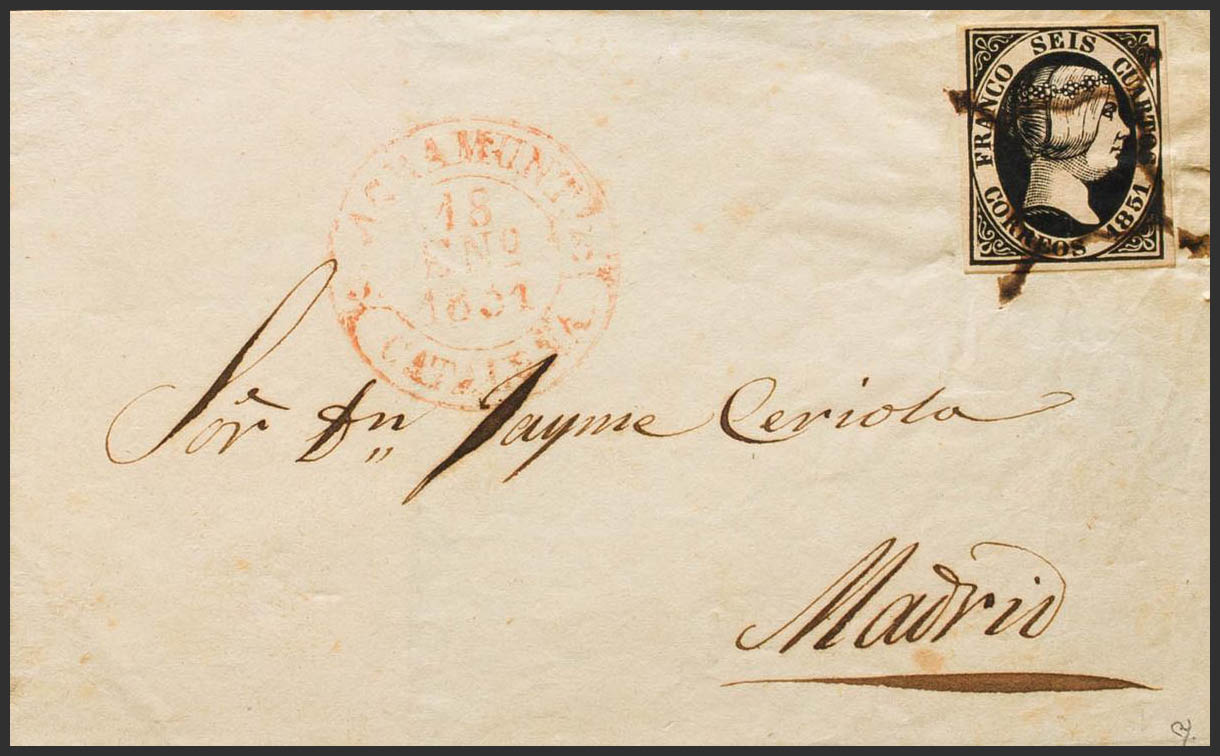 FRANCO SEIS CUARTOS
CORREOS 1851
AGRAMUNT
18
ENO
1851
CATALUÑA
Sor Dn Jayme Ceriola
Madrid